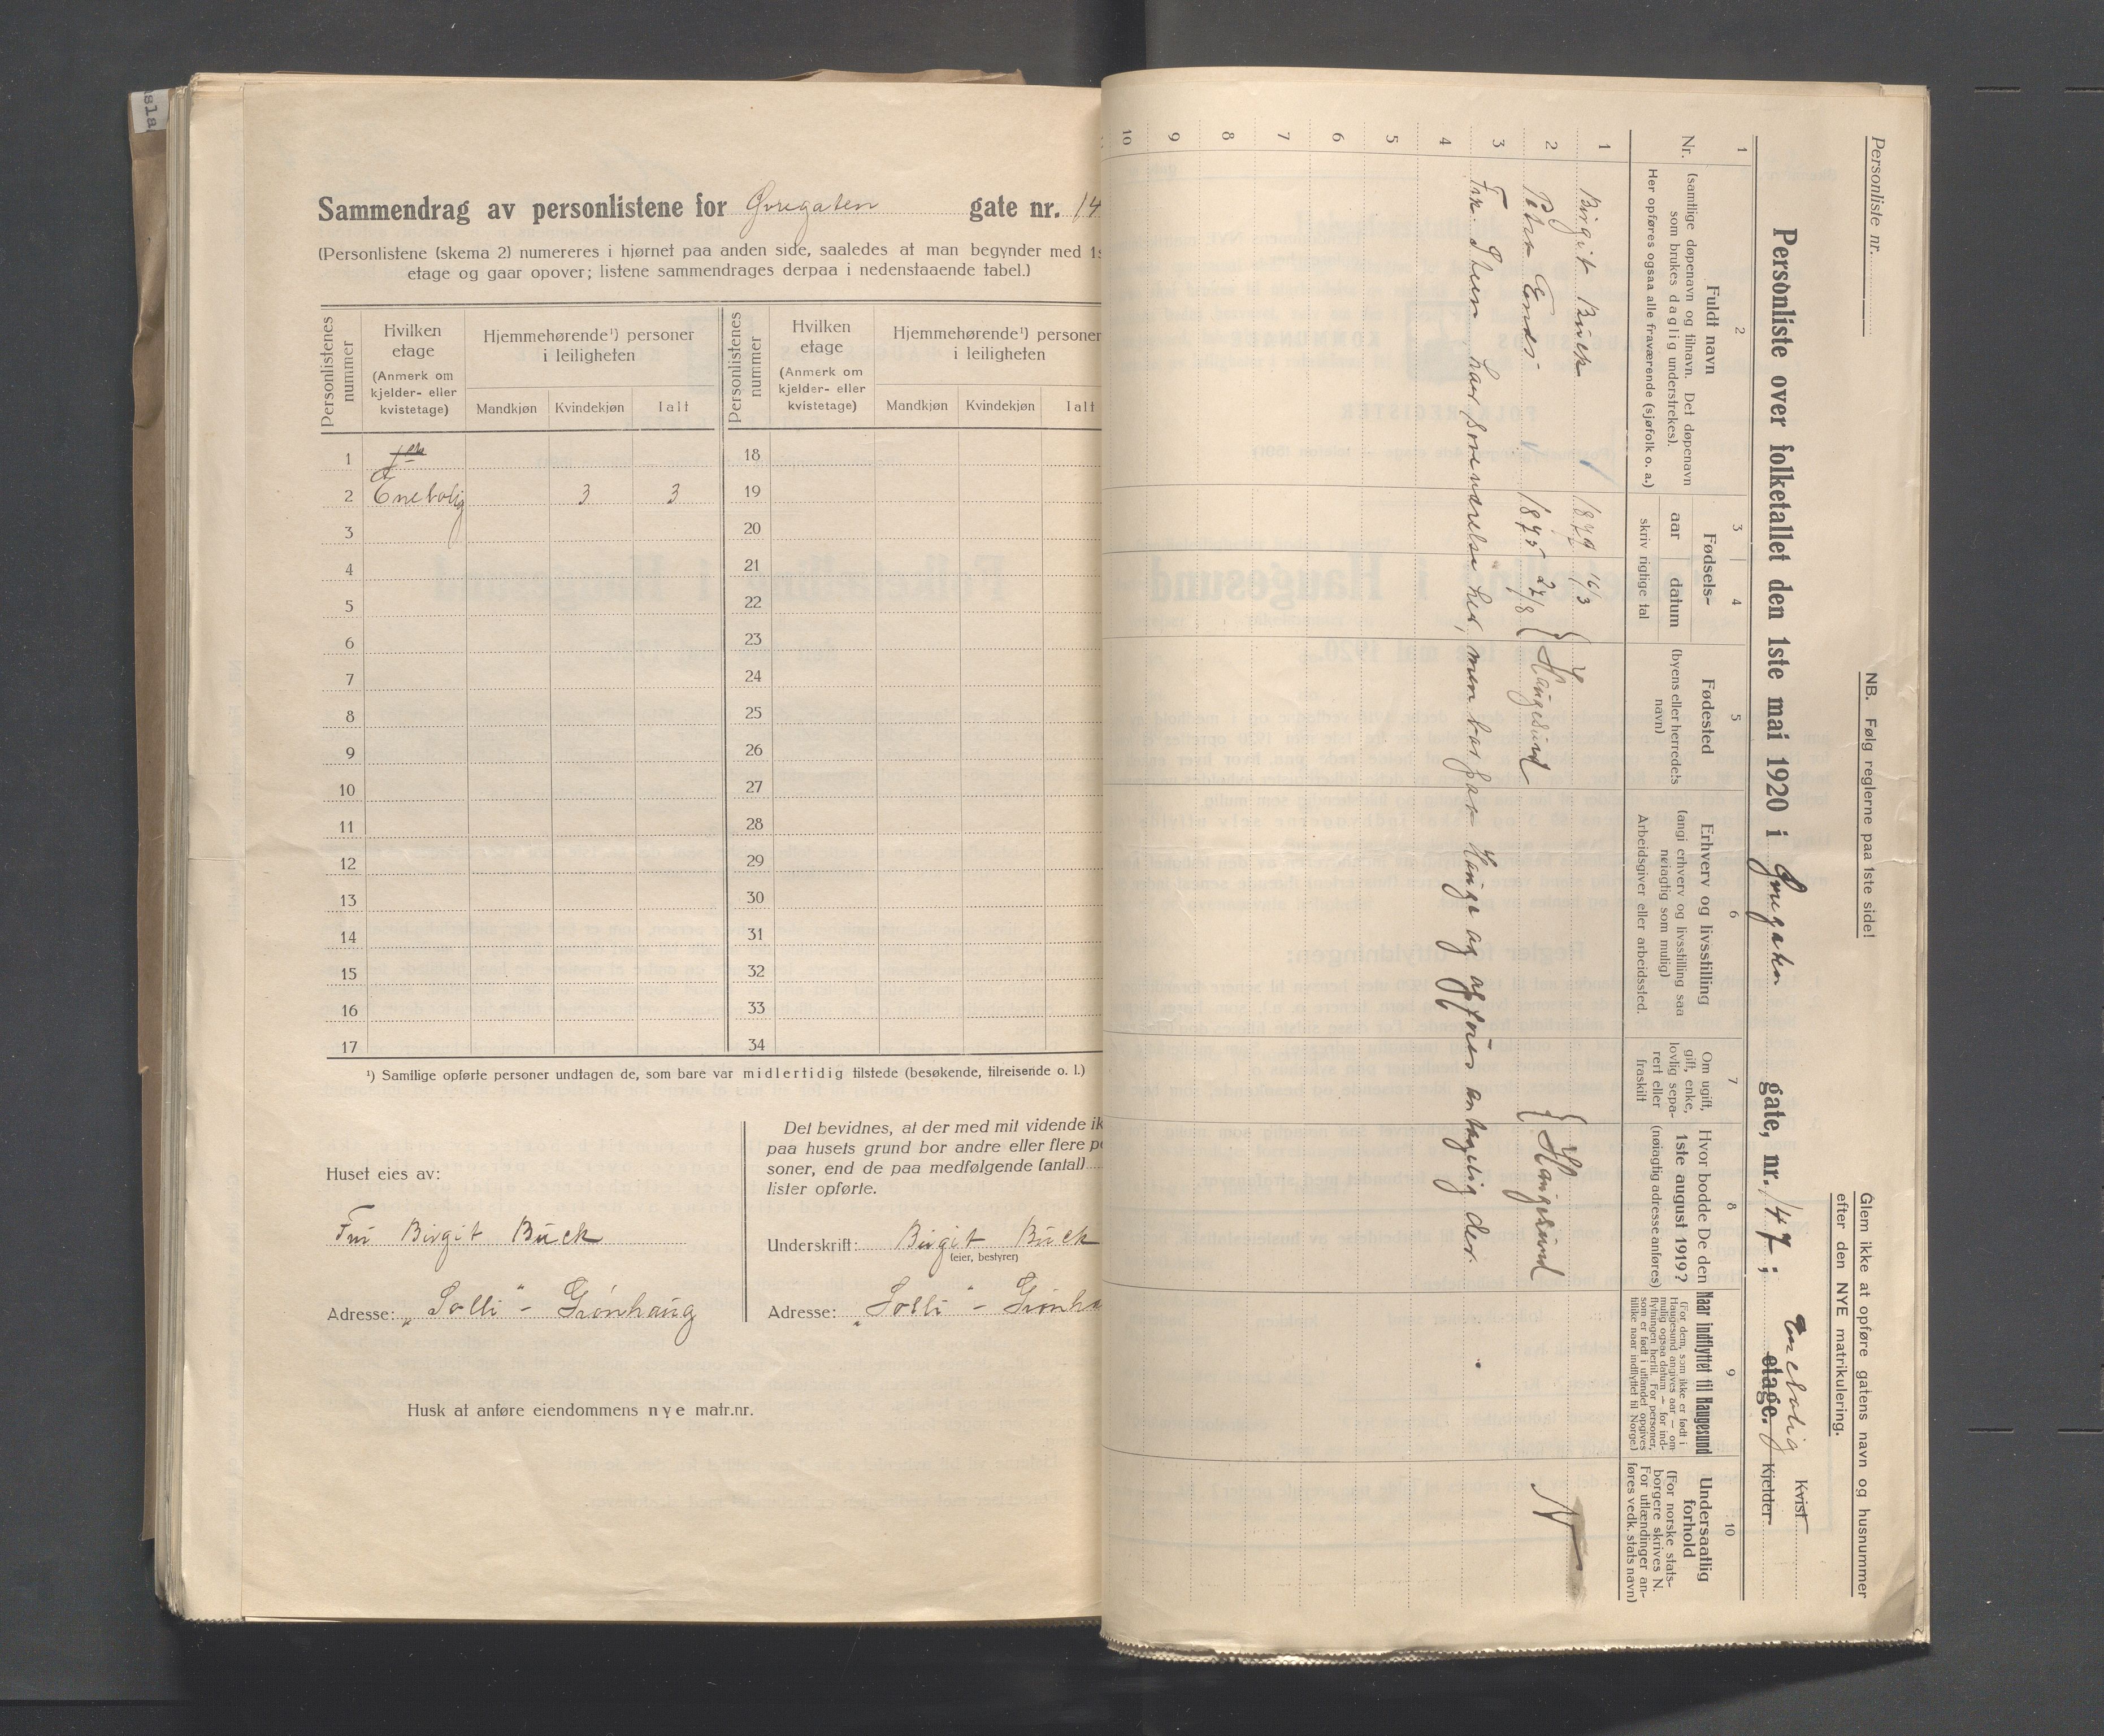 Sammendrag av personlistene for Øvregaten gate nr. 14
(Personlistene (skema 2) numereres i hjørnet paa anden side, saaledes at man begynder med 1s
etage og gaar opover; listene sammendrages derpaa i nedenstaaende tabel.)
Personlistenes nummer
Hvilken etage
(Anmerk om kjelder- eller kvistetage)
Hjemmehørende¹) personer i leiligheten
Mandkjøn Kvindekjøn Ialt
Personlistenes nummer
Hvilken etage
(Anmerk om kjelder- eller kvistetage)
Hjemmehørende¹) personer i leiligheten
Mandkjøn Kvindekjøn Ialt
1 18
2 Enebolig 3 3 19
3 20
4 21
5 22
6 23
7 24
8 25
9 26
10 27
11 28
12 29
13 30
14 31
15 32
16 33
17 34
¹) Samtlige opførte personer undtagen de, som bare var midlertidig tilstede (besøkende, tilreisende o. l.)
Huset eies av:
Fru Birgit Buck
Adresse: "Solli" - Grønhaug
Det bevidnes, at der med mit vidende ik
paa husets grund bor andre eller flere pe
soner, end de paa medfølgende (antal)
lister opførte.
Underskrift: Birgit Buck
(eier, bestyrer)
Adresse: "Solli" - Grønha
Husk at anføre eiendommens nye matr.nr.
Personliste nr.
NB. Følg reglerne paa 1ste side!
Glem ikke at opføre gatens navn og husnummer
efter den NYE matrikulering.
Personliste over folketallet den 1ste mai 1920 i Øvregaten gate, nr. 147; Enebolig etage. Kvist Kjelder
1 2 3 4 5 6 7 8 9 10
Nr.
Fuldt navn
(samtlige døpenavn og tilnavn. Det døpenavn
som brukes daglig understrekes).
Her opføres ogsaa alle fraværende (sjøfolk o. a.)
Fødsels-
aar datum
skriv rigtige tal
Fødested
(byens eller herredets
navn)
Erhverv og livsstilling
(angi erhverv og livsstilling saa
nøiagtig som mulig)
Arbeidsgiver eller arbeidssted.
Om ugift,
gift, enke,
lovlig sepa-
rert eller
fraskilt
Hvor bodde De den
1ste august 1919?
(nøiagtig adresse anføres)
Naar indflyttet til Haugesund
(For dem, som ikke er født i
Haugesund angives aar — om
mulig ogsaa datum — for ind-
flytningen hertil. For personer,
som er født i utlandet opgives
tillike naar indflyttet til Norge.)
Undersaatlig
forhold
(For norske stats-
borgere skrives N.
For utlændinger an-
føres vedk. stats navn)
1 Birgit Buck 1879 16/3
2 Petra Endsi 1875 27/8 Haugesund Haugesund N
3 Frk. Steen har soveværelse her, men bor paa Hauge og opføres antagelig der.
4
5
6
7
8
9
10